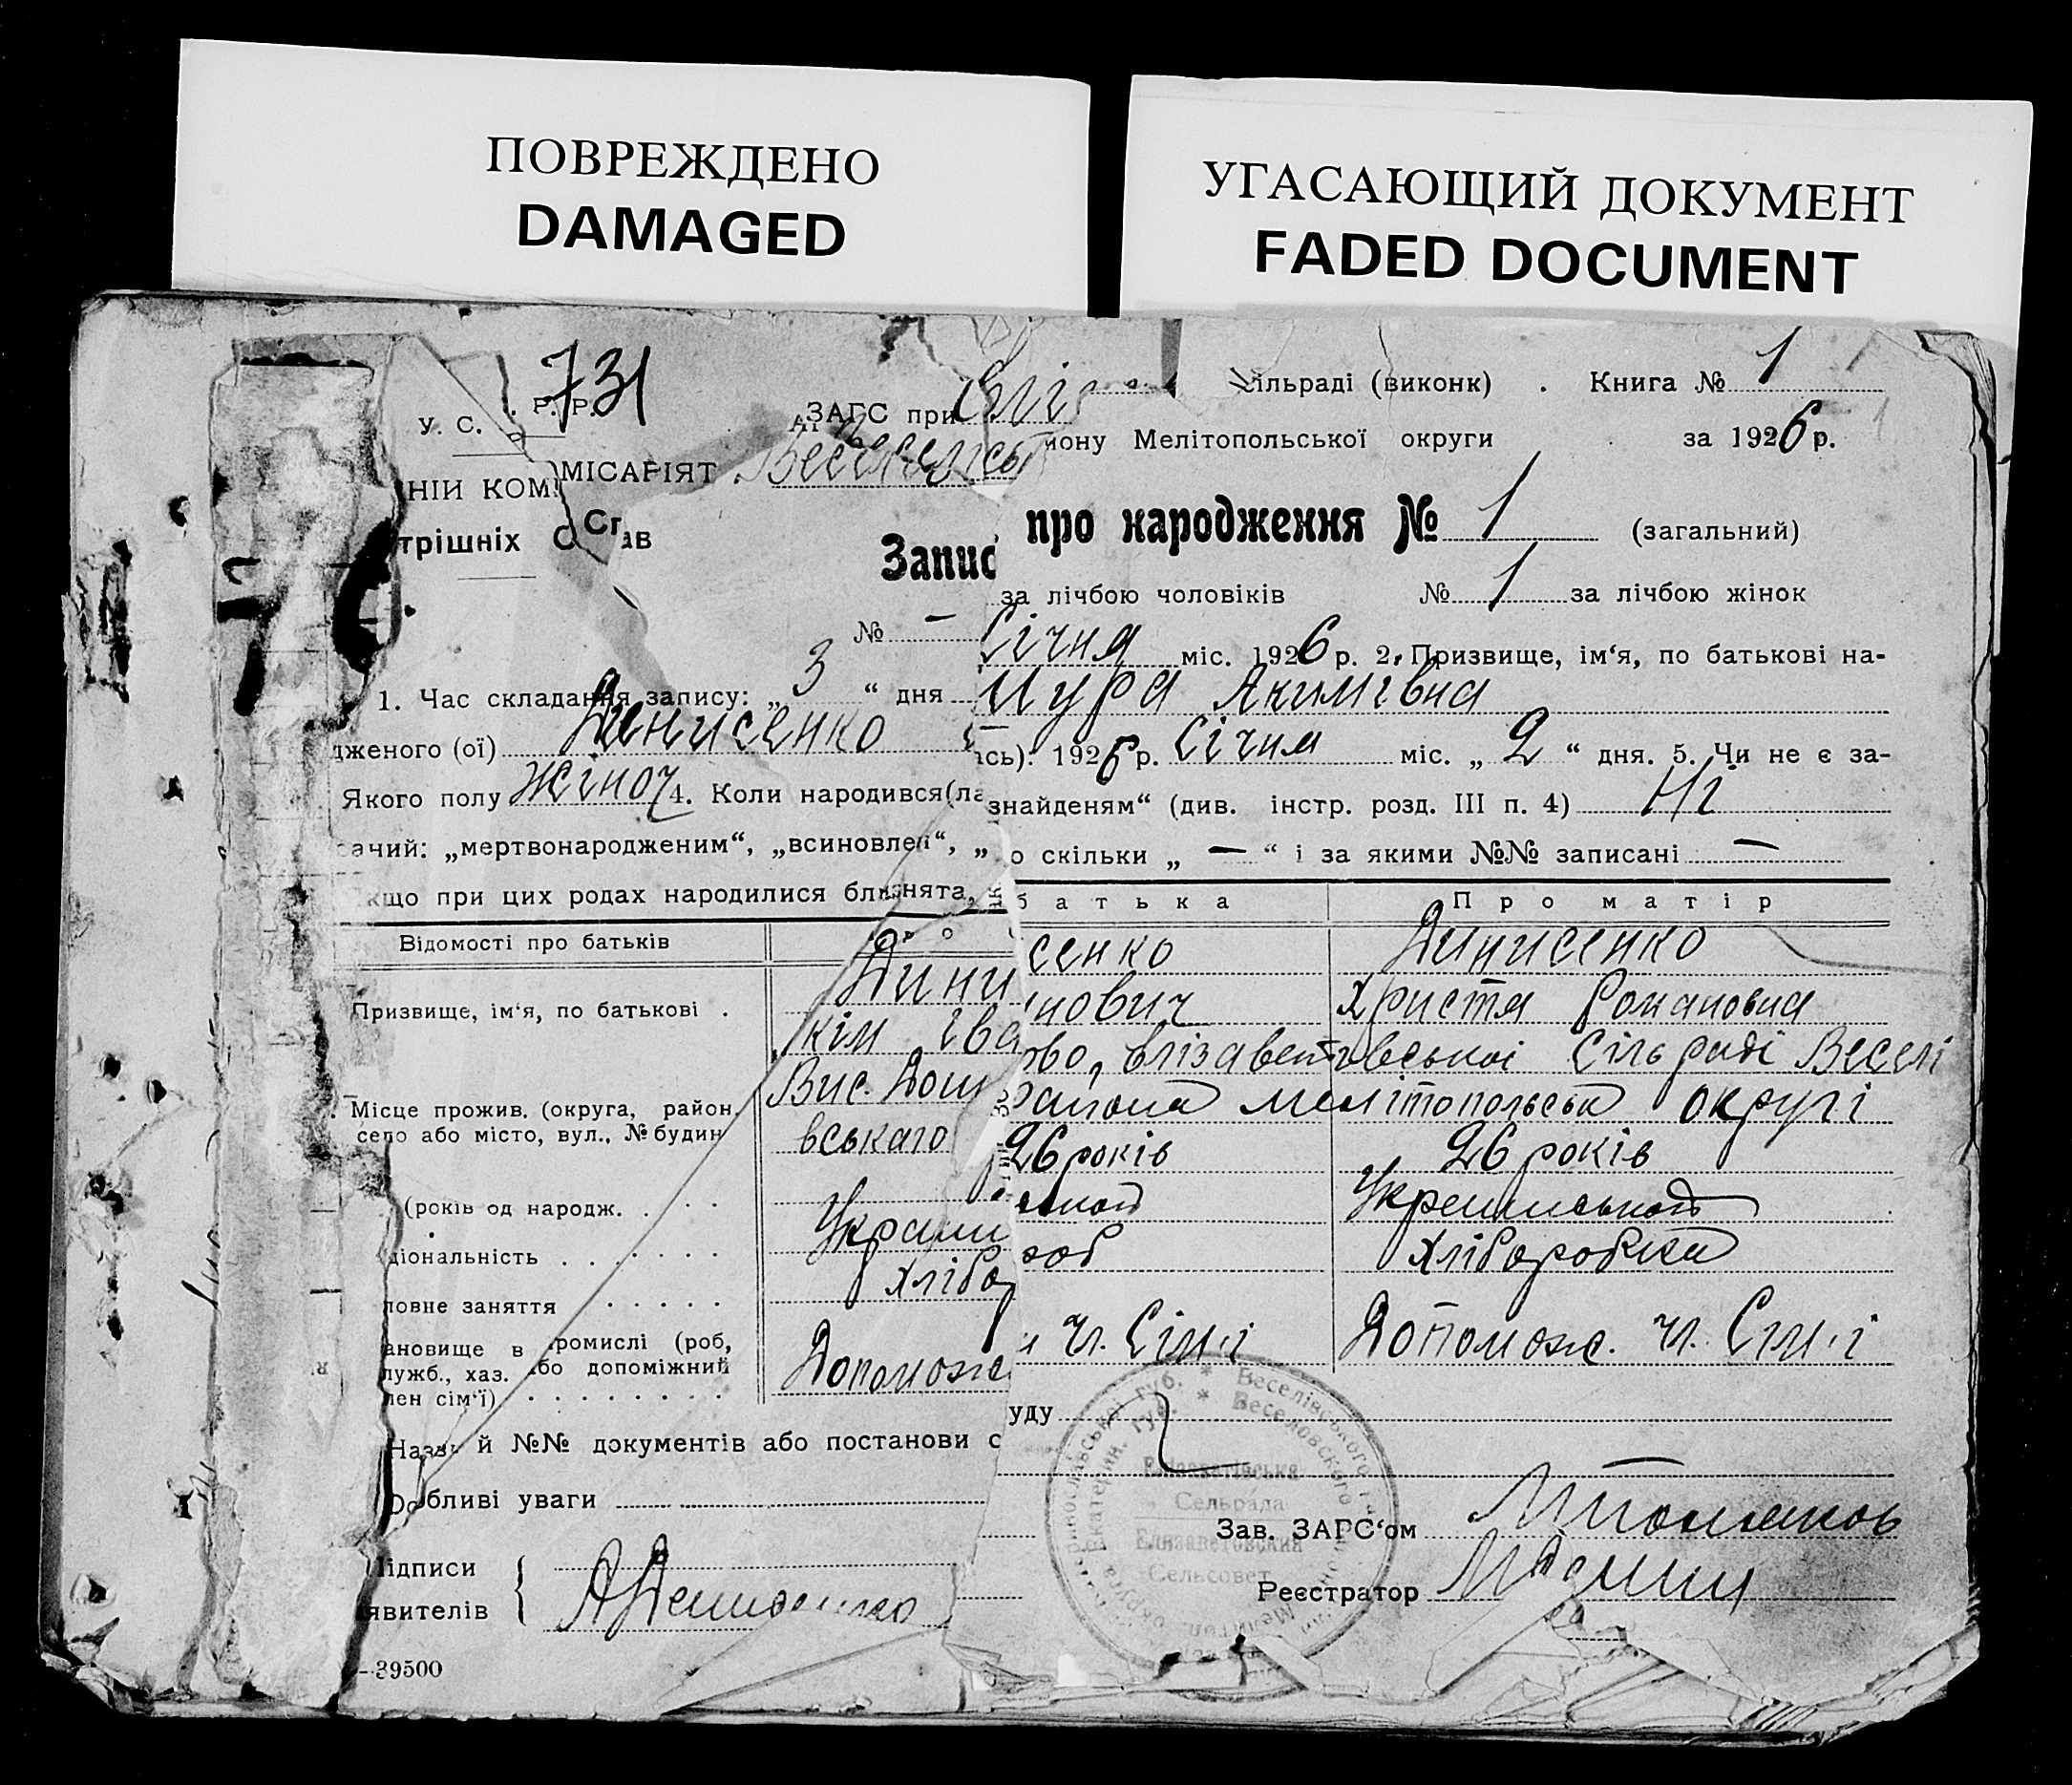 ПОВРЕЖДЕНО
DAMAGED
УГАСАЮЩИЙ ДОКУМЕНТ
FADED DOCUMENT
731
У. С. Р. Р.
ЗАГС при
ільраді (виконк) . Книга № 1
йону Мелітопольської округи за 1926 р.
НІЙ КОМІСАРІЯТ
трішніх Справ
Запис про народження № 1 (загальний)
№ — за лічбою чоловіків № 1 за лічбою жінок
1. Час складання запису: „3“ дня Січня міс. 1926 р. 2. Призвище, ім‘я, по батькові на-
дженого (ої) Денисенко Шура Якимівна
Якого полу жіноч 4. Коли народився(лась): 1926 р. Січня міс. „2“ дня. 5. Чи не є за-
рачий: „мертвонародженим“, „всиновлен“, „знайденям“ (див. інстр. розд. III п. 4) Ні
Якщо при цих родах народилися близнята, то скільки „—“ і за якими №№ записані —
Відомості про батьків
Про батька
Про матір
Призвище, ім‘я, по батькові .
Динисенко
Якім Іванович
Динисенко
Христя Романовна
Місце прожив. (округа, район,
село або місто, вул., № будин
Вис. Єлізаветовської Сільраді Веселі
вського Района Мелітопольськ округі
(років од народж. . . .
26 років
26 років
ціональність . . . . . .
Украинской
Хлібороб
Хлеборобка
ловне заняття . . . . .
ановище в промислі (роб,
лужб., хаз. або допоміжний
лен сім‘ї) . . . . . . . .
Допомож. чл. Сімі
Допомож. чл. Сімі
Назви й №№ документів або постанови суду
Особливі уваги
Підписи
явителів
Зав. ЗАГС‘ом
Реєстратор
Сельрада
Елизаветовский
Сельсовет
39500